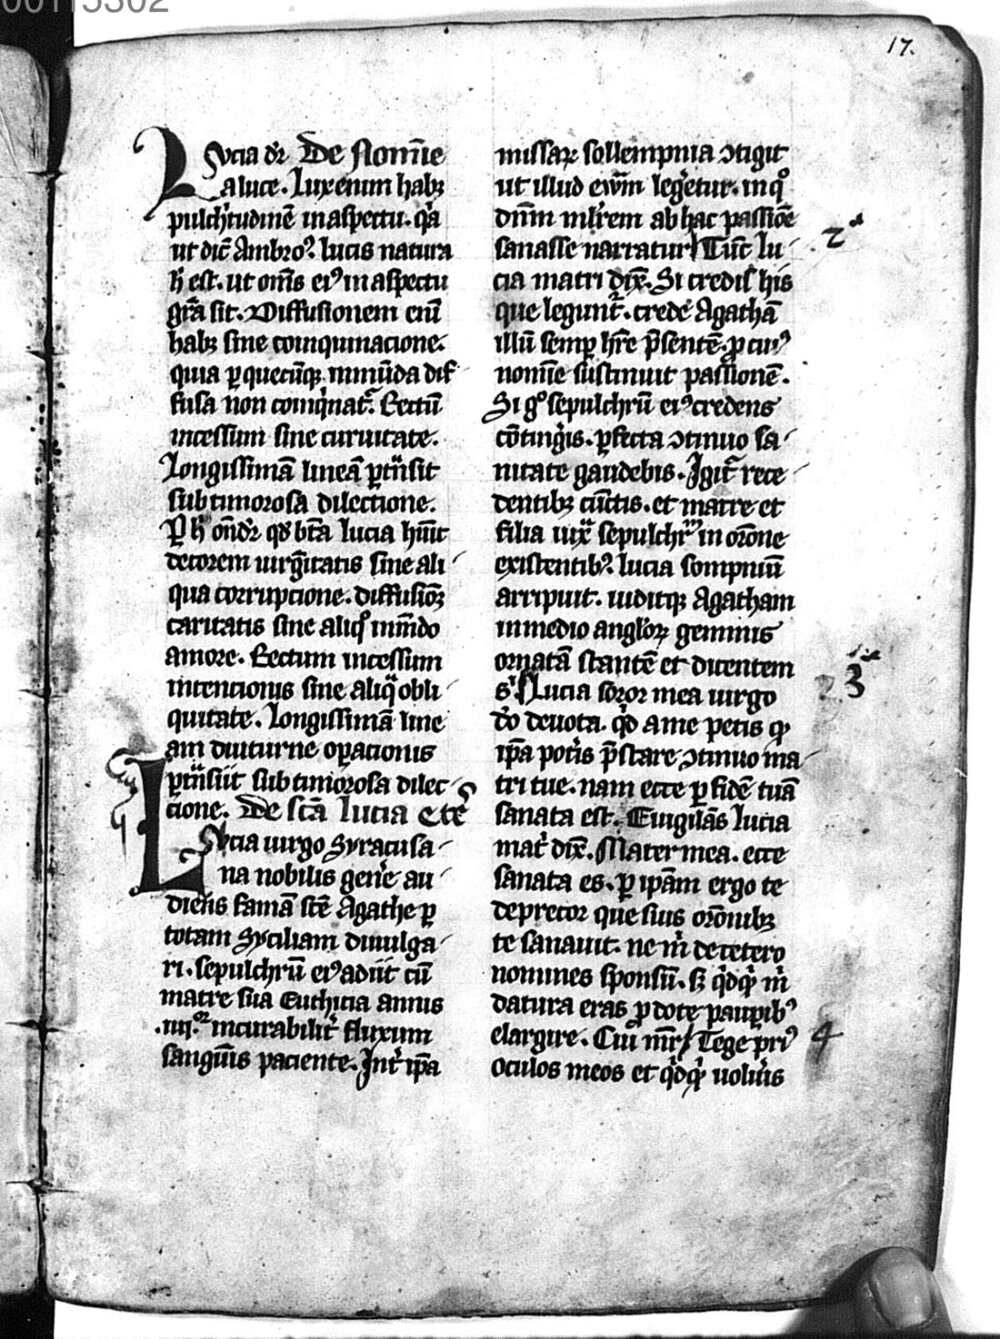 00115302
17.
Lucia dr̄ De Nomīe
a luce. Lux enim habꝫ
pulchͥtudinē in aspectu. qͣa
ut dic̄ Ambroꝰ. lucis natura
h̄ est. ut om̄is eiꝰ in aspectu
grā sit. Diffusionem eciā
habꝫ sine coinquinacione.
quia ꝑ quecūqꝫ inmūda dif
fusa non coinqͥnat᷑. Rectū
incessum sine curuitate.
Longissimā lineā ꝑtͣnsit
sub timorosa dilectione.
Ꝑ h̄ ondr̄ qd̄ btā lucia hūit
decorem uirgītatis sine ali
qua corrupcione. diffusioꝫ
caritatis sine aliqͦ inmūdo
amore. Rectum incessum
intencionis sine aliqͣ obli
quitate. Longissimā line
am diuturne oꝑacionis
ꝑtͣnsiit sub timorosa dilec
cione. De scā Lucia
Lucia uirgo Syracusa
na nobilis gen̄e au
diens famā scē Agathe ꝑ
totam Syciliam diuulga
ri. sepulchrū eiꝰ adiit cū
matre sua Euthicia annis
.iiiiͦʳ. incurabilit᷑ fluxum
sanguīs paciente. Int̄ ipā
missaꝝ sollempnia ↄtigit
ut illud ewm̄ leḡetur. in qͦ
dn̄m ml̄rem ab hac passiōe
sanasse narratur / Tūc lu
2ᵃ
cia matri dix̄. Si credis his
que legunt᷑. crede Agathā
illū semꝑ hr̄e p̄sentē. ꝓ cuiꝰ
nomīe sustinuit passionē.
Si gͦ sepulchrū eiꝰ credens
cōting̾is. ꝑfecta ↄtinuo sa
nitate gaudebis. Igit᷑ rece
dentibꝫ cūctis. et matre et
filia iuxͣ sepulchrͫ in orōne
existentibꝰ. lucia sompniū
arripuit. uiditqꝫ Agatham
in medio angl̄oꝝ gemmis
ornatā stantē et dicentem
3ᵃ
sͥ. / Lucia soror mea uirgo
dō deuota. qͥd a me petis qͩ
ipā pot̾is p̄stare ↄtinuo ma
tri tue. nam ecce ꝑ fidē tuā
sanata est. Euigilās lucia
mat̾ dix̄. Mater mea. ecce
sanata es. ꝑ ipām ergo te
deprecor que suis orōnibꝫ
te sanauit. ne m̄ de cetero
nomines sponsū. sꝫ qͥdqͥd m̄
datura eras ꝓ dote pauꝑibꝰ
elargire. Cui mr̄ / Tege priꝰ
4
oculos meos et qͥdqͥd uolūis